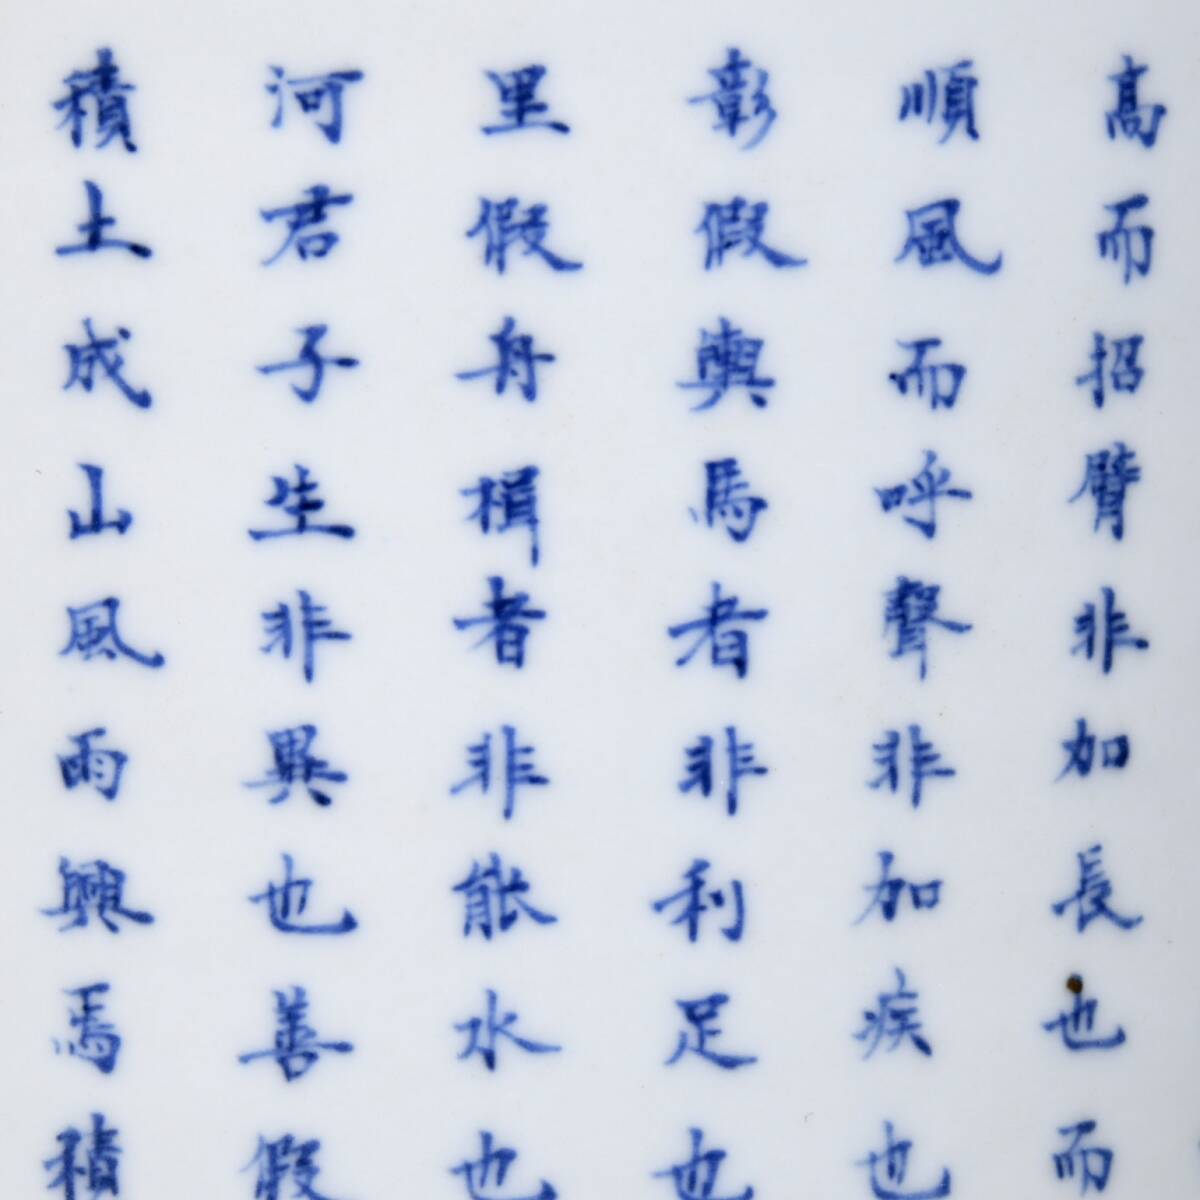 髙而招臂非加長也而
順風而呼聲非加疾也
彰假輿馬者非利足也
里假舟楫者非能水也
河君子生非異也善假
積土成山風雨興焉積